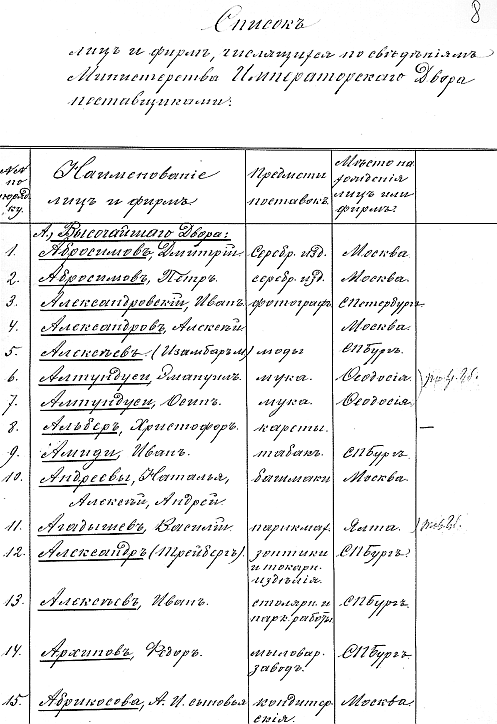 8
Списокъ
лицъ и фирмъ, числящихся по свѣдѣніямъ
Министерства Императорскаго Двора
поставщиками:
№№ по порядку. Наименованіе лицъ и фирмъ Предметы поставокъ. Мѣсто нахожденія лицъ или фирмъ.
А, Высочайшаго Двора:
1. Абросимовъ, Дмитрій Серебр. изд. Москва.
2. Абросимовъ, Петръ. серебр. изд. Москва.
3. Александровскій, Иванъ. фотографъ СПетербургъ
4. Александровъ, Алексѣй Москва.
5. Алексѣевъ (Изамбаръ) моды СПбургъ.
6. Алтундуси, Эмануилъ. мука. Ѳеодосія.
7. Алтундуси, Осипъ. мука. Ѳеодосія.
8. Альберъ, Христофоръ. кареты. —
9. Амиди, Иванъ. табакъ. СПбургъ.
10. Андреевы, Наталья, башмаки Москва.
Алексѣй, Андрей.
11. Агадышевъ, Василій. парикмах. Ялта.
12. Александръ (Трейбергъ). зонтики СПбургъ.
и токарн.
издѣлія.
13. Алексѣевъ, Иванъ. столярн. и СПбургъ.
парк. работы
14. Архиповъ, Ѳедоръ. мыловар. СПбургъ.
заводъ.
15. Абрикосова, А. И. сыновья кондитер- Москва.
скія.